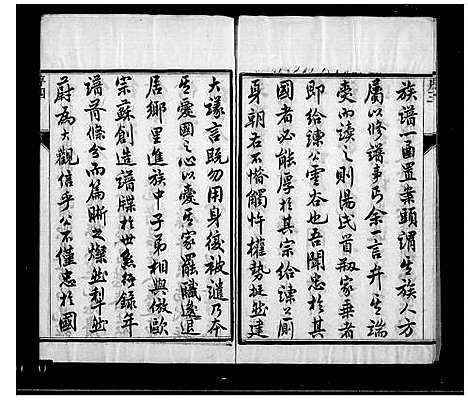 族譜一函置案頭謂生族人方
屬以修譜事乃余一言弁其端
受而讀之則湯氏首剏家乘者
即給諫公雲谷也吾聞忠於其
國者必能厚於其宗給諫公厠
身朝右不惜觸忤權勢挺然建
大議言既勿用身後被譴乃本
其愛國之心以愛其家罷職邊退
居鄉里進族中子弟相與倣歐
宗蘇創造譜牒於世系行錄年
譜晉條分而篇晰之燦然犁然
蔚為大觀信乎公不僅忠於國